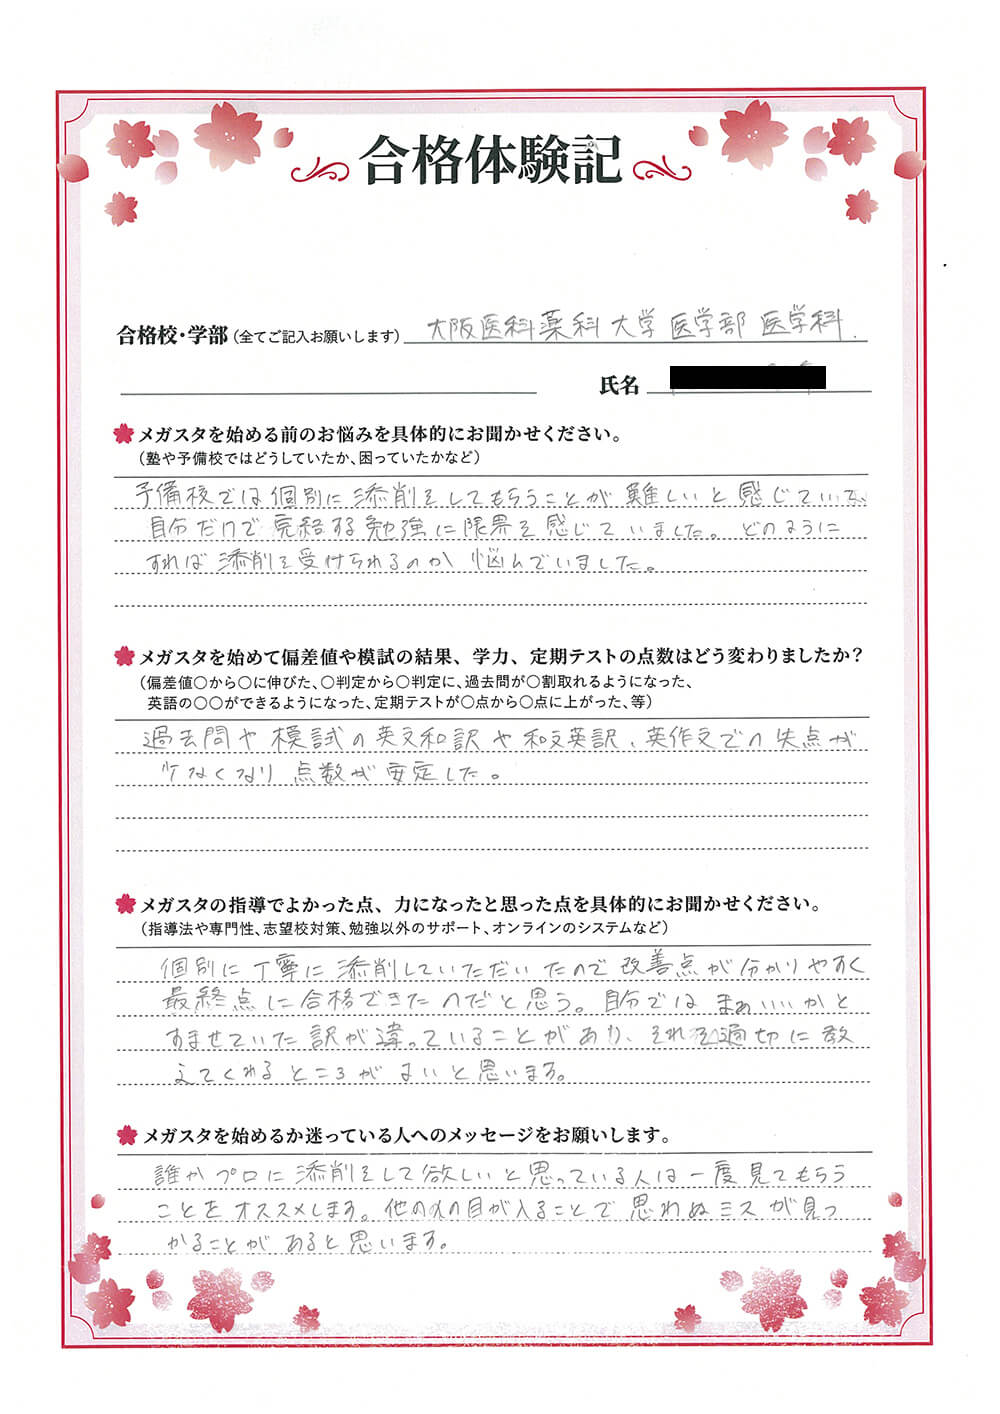 合格体験記
合格校・学部（全てご記入お願いします） 大阪医科薬科大学 医学部 医学科
氏名
メガスタを始める前のお悩みを具体的にお聞かせください。
（塾や予備校ではどうしていたか、困っていたかなど）
予備校では個別に添削をしてもらうことが難しいと感じていて、
自分だけで完結する勉強に限界を感じていました。どのように
すれば添削を受けられるのか悩んでいました。
メガスタを始めて偏差値や模試の結果、学力、定期テストの点数はどう変わりましたか？
（偏差値〇から〇に伸びた、〇判定から〇判定に、過去問が〇割取れるようになった、
英語の〇〇ができるようになった、定期テストが〇点から〇点に上がった、等）
過去問や模試の英文和訳や和文英訳、英作文での失点が
少なくなり点数が安定した。
メガスタの指導でよかった点、力になったと思った点を具体的にお聞かせください。
（指導法や専門性、志望校対策、勉強以外のサポート、オンラインのシステムなど）
個別に丁寧に添削していただいたので改善点が分かりやすく
最終点に合格できたのだと思う。自分ではまぁいいかと
すませていた訳が違っていることがあり、それを適切に教
えてくれるところがよいと思います。
メガスタを始めるか迷っている人へのメッセージをお願いします。
誰かプロに添削をして欲しいと思っている人は一度見てもらう
ことをオススメします。他の人の目が入ることで思わぬミスが見つ
かることがあると思います。